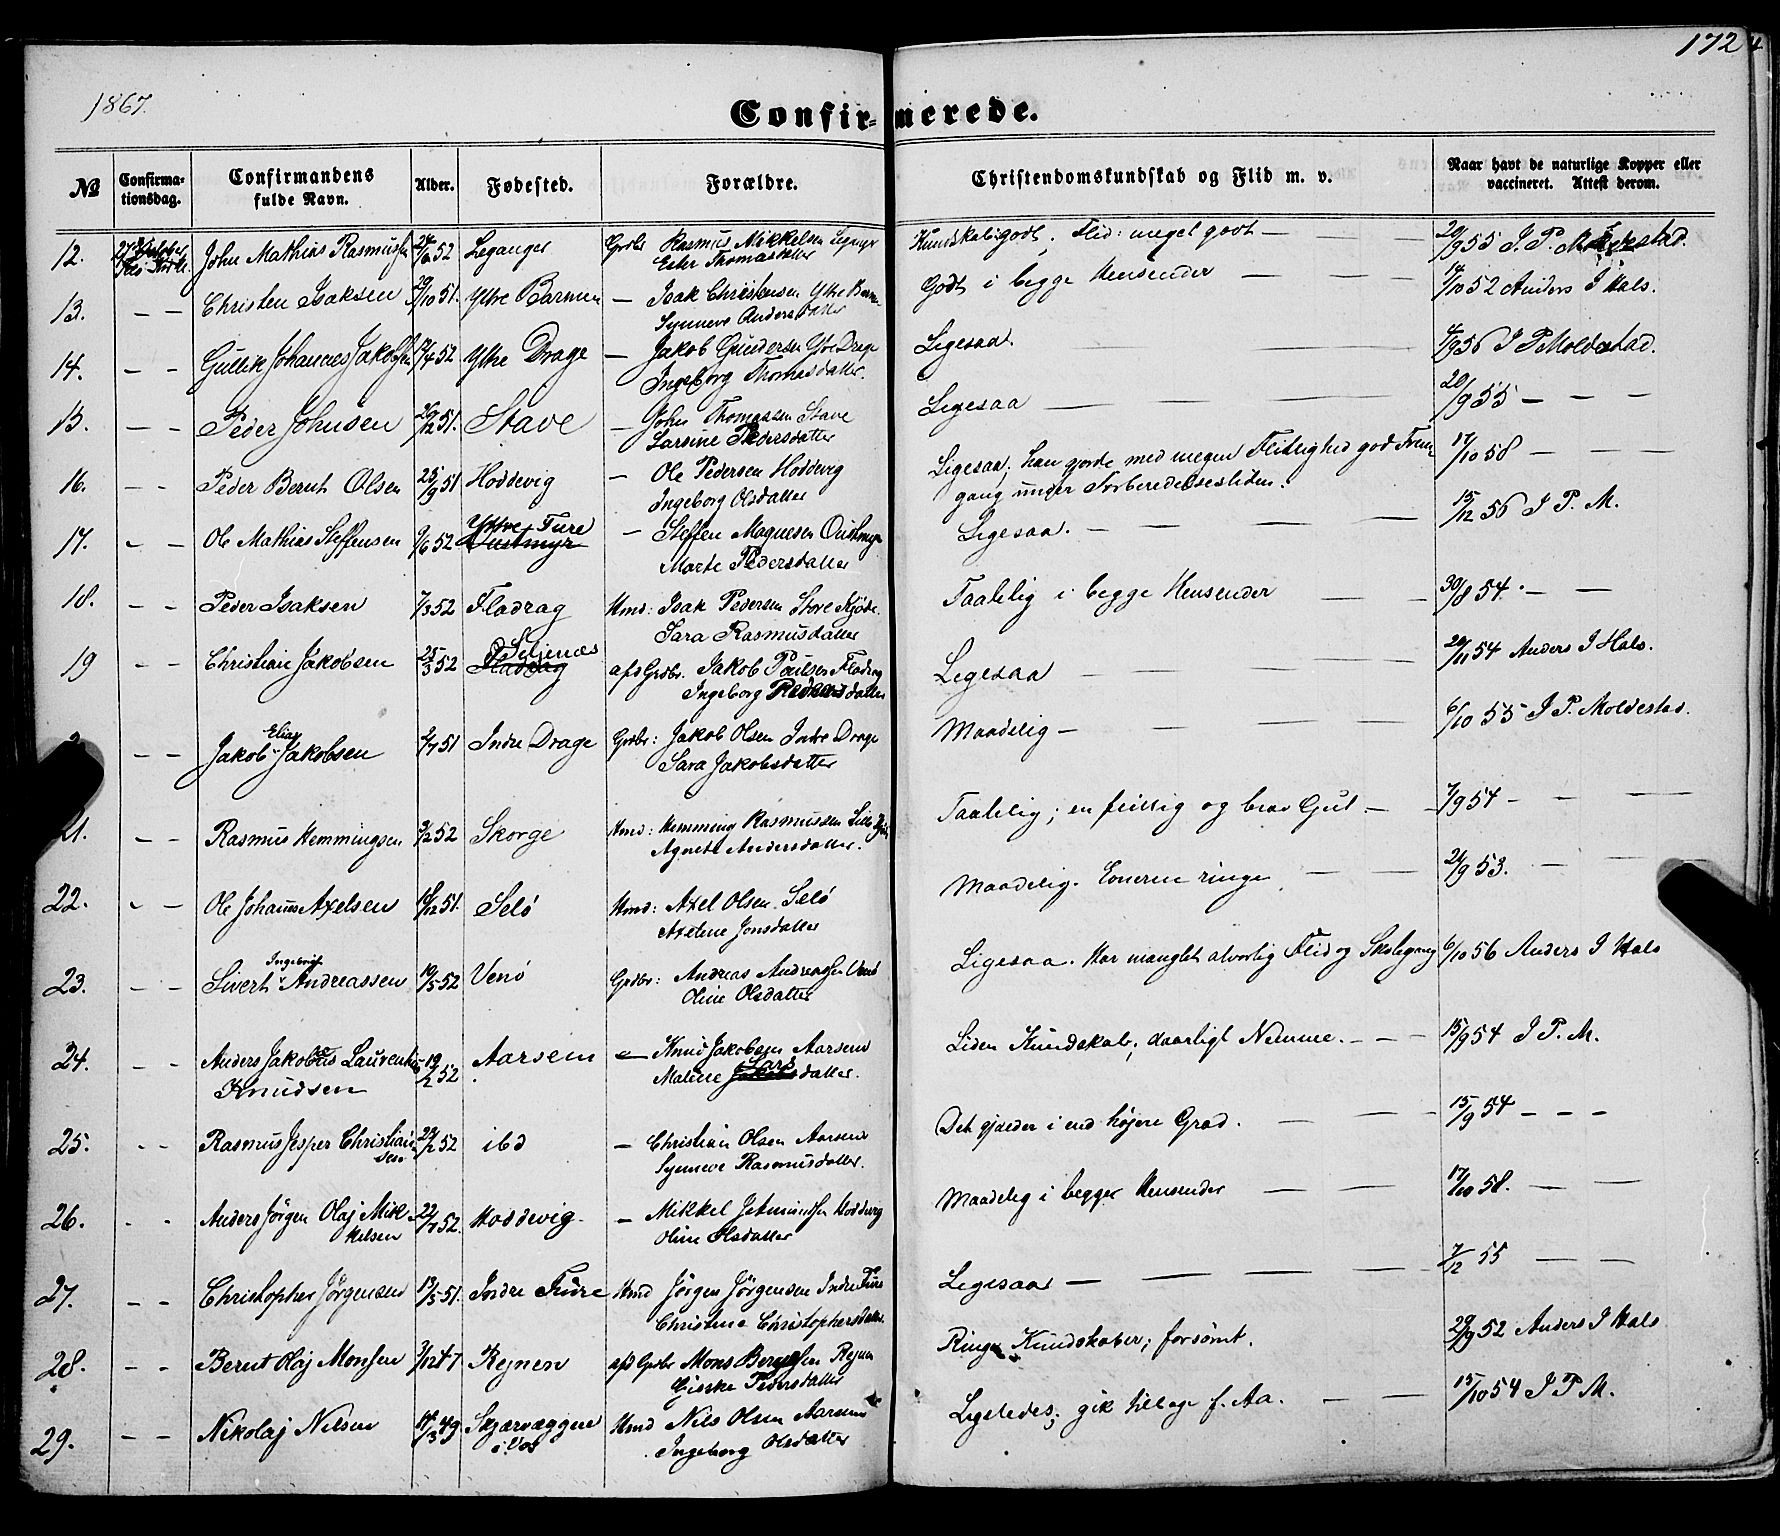 172
1867.
Confirmerede.
№ Confirmationsdag. Confirmandens fulde Navn. Alder. Fødested. Forældre. Christendomskundskab og Flid m. v. Naar havt de naturlige Kopper eller vaccineret. Attest derom.
12. John Mathias Rasmussen 52 Leganger Grdbr Rasmus Mikkelsen
Ester Thomasdatter
Kundskab: godt. Flid: meget godt — — 20/9 55 I. P. Moldestad.
13. — — Christen Isaksen 29/10 51. Ytre Barmen — Isak Christensen Ytre
Synneve Andersdatter
Godt i begge Hensender — — — 14/10 52 Anders I Hals.
14. — — Gullik Johannes Jakobsen 52 Ytre Drage — Jakob Gundersen Ytre Drage
Ingeborg Thomasdatter.
Ligesaa. — — — 56 I P Moldestad.
15. — — Peder Johnsen 26/12 51. Stave — John Thomassen Stave
Larsine Pedersdatter
Ligesaa — — — — 20/9 55 — — —
16. — — Peder Bernt Olsen 25/9 51 Hoddevig — Ole Pedersen Hoddevig
Ingeborg Olsdatter
Ligesaa; han gjorde med megen Flittighed god Frem-
gang under Forberedelsestiden. 17/10 58 — — —
17. — — Ole Mathias Steffensen 52 Ytre Fure
— Steffen Magnesen
Marte Pedersdatter
Ligesaa. — — — 15/12 56 I P. M.
18. — — Peder Isaksen 7/3 52 Fladrag Hmd: Isak Pedersen Store
Sara Rasmusdatter
Taalelig i begge Hensender — — 30/8 54. — —
19 Christian Jakobsen 25/3 52 Seljenes
Fladrag afd Grdbr. Jakob Paulsen Fladrag
Ingeborg
Ligesaa — — — — 20/11 54 Anders I Hals.
— — Jakob Elias Jakobsen 2/7 51 Indre Drage Grdbr: Jakob Olsen Indre Drage
Sara Jakobsdatter
Maadelig — — — — 6/10 55 I P. Moldestad.
21. — — Rasmus Hemmingsen 52 Skorge Hmd: Hemming Rasmussen
Agnete Andersdatter.
Taalelig; en flittig og brav Gut — — 7/9 54 — — —
22. — — Ole Johannes Axelsen 51. Selø Hmd: Axel Olsen Selø
Axeline Jonsdatter
Maadelig. Evnerne ringe — — 24/9 53. — —
23. — — Sivert Ingebrigt Andreassen 19/5 52 Venø Grdbr: Andreas Andreassen Venø
Oline Olsdatter
Ligesaa. Har manglet alvorlig Flid og Skolegang 6/10 56 Anders I Hals
24. — — Anders Jakobus
Knudsen 19/2 52 Aarsem — Knud Jakobsen Aarsem
Malene Larsdatter.
Liden Kundskab; daarligt Nemme. — — — 15/9 54 I P. M.
25. — — Rasmus Jesper Christian-
sen 52 ibd — Christian Olsen Aarsem
Synneve Rasmusdatter.
Det gjælder i end højere Grad. — — — 15/9 54 — — —
26. — — Anders Jørgen Olaj Mik-
kelsen 22/7 52. Hoddevig — Mikkel Hoddevig
Oline Olsdatter
Maadelig i begge Hensender — — 17/10 58. — —
27. — — Christopher Jørgensen 13/5 51. Indre Fure Hmd Jørgen Jørgensen Indre Fure
Christine Christophersdatter
Ligesaa — — — — 7/12 55 — —
28. — — Bernt Olaj Monsen 47 Rejnen afd Grdbr Mons Rejnen
Giertke Pedersdatter
Ringe Kundskaber; forsømt. 29/9 52 Anders I Hals
29. — — Nikolaj Nilsen 49 Skjærvæggen
Hmd Nils Olsen Aarsem
Ingeborg Olsdatter
Ligeledes; gik tillige f. Aa. — — 15/10 54 I P M.